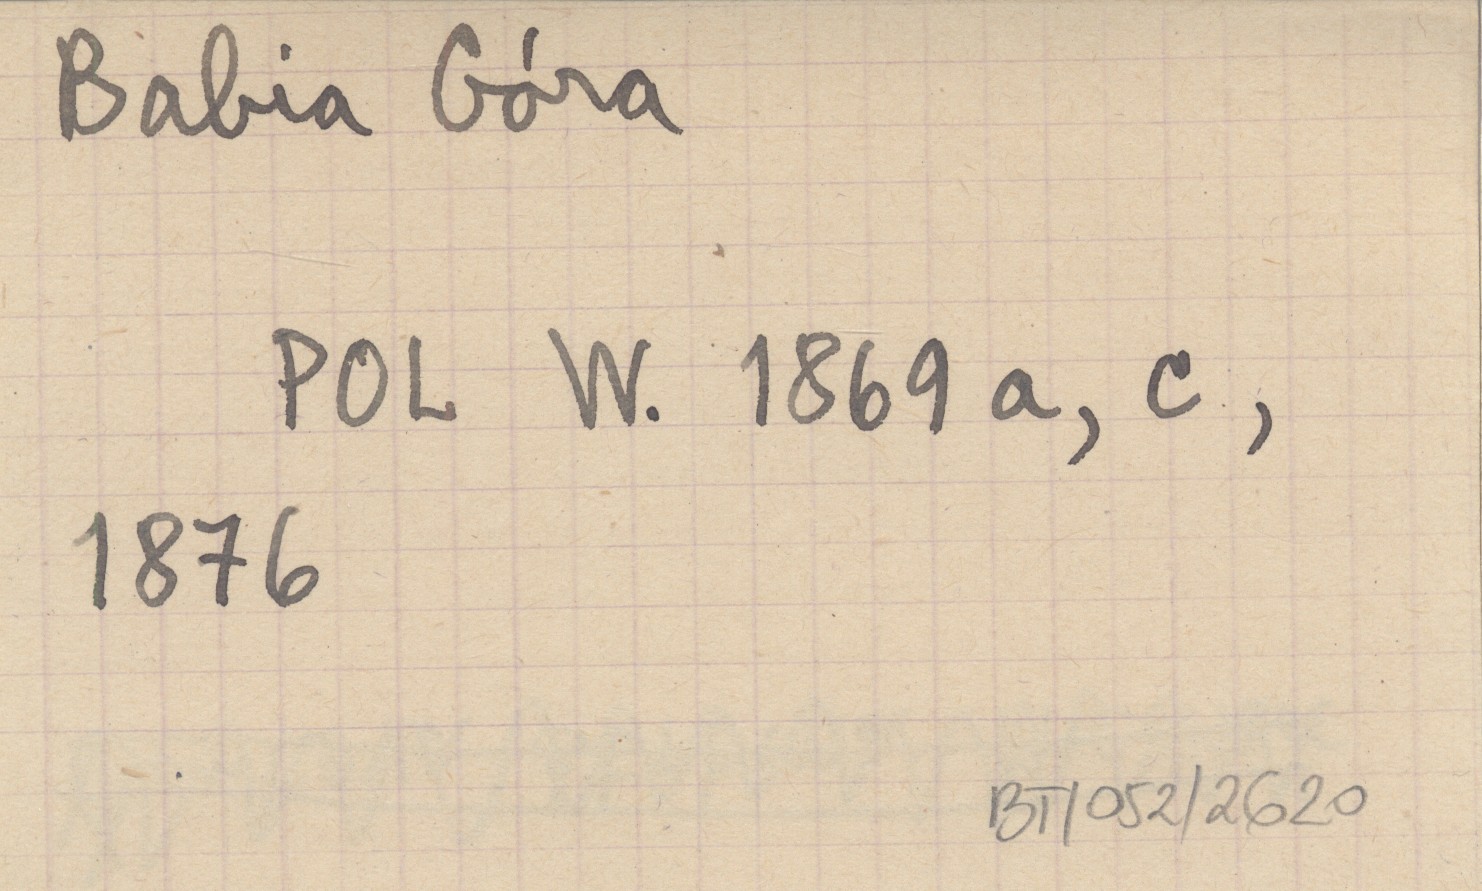 Babia Góra
POL W. 1869 a, c,
1876
BT/052/2620